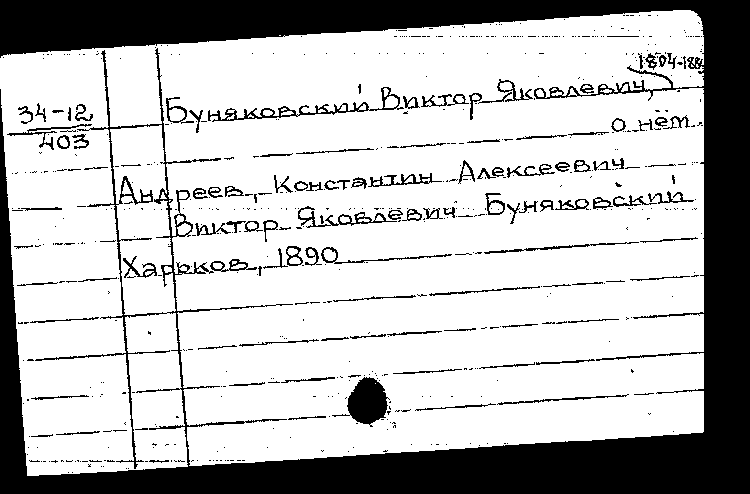 1804-188
34-12
403
Буняковский Виктор Яковлевич,
о нём.
Андреев, Константин Алексеевич
Виктор Яковлевич Буняковский
Харьков, 1890